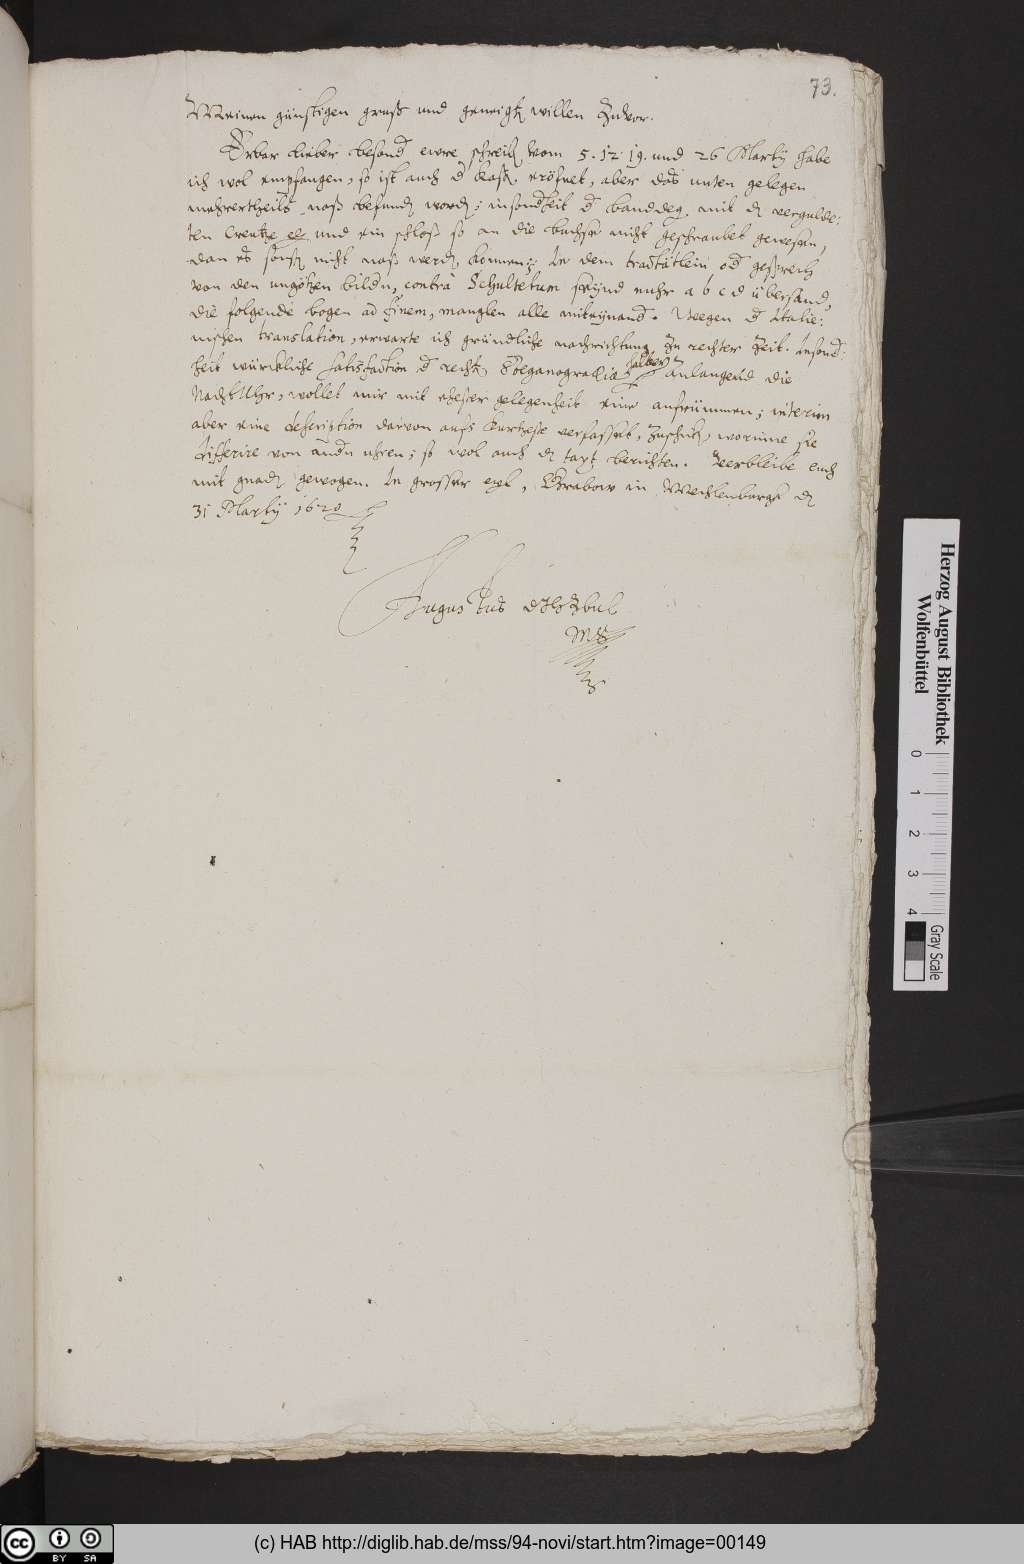 73.
Meinen günstigen gruß und geneigt willen zuvor.
Erbar lieber besond ewre schreib vom 5. 12. 19. und 26 Martij habe
ich wol empfangen, so ist auch d kast eröfnet, aber das unten gelegen
mehrertheils naß befund word; insondheit d band deg. mit d vergulde:
ten Creutze etc und ein schloß so an die buchse nicht geschraubet gewesen,
dan es sonst nicht naß werd konnen; In dem tractätlein od gesprech
von den ungötzen bildn, contra Schultetum seijnd nuhr a b c d übersand,
die folgende bogen ad finem, manglen alle miteijnand. Wegen d Italie:
nischen translation, erwarte ich gründliche nachrichtung zu rechter zeit. Insond:
heit würckliche satisfaction d recht Steganografiae halber. Anlangend die
NachtUhr, wollet mir mit ehester gelegenheit eine ; interim
aber eine description darvon aufs kurtzeste verfasset, zuschick, worinne sie
differire von andn uhren; so wol auch d taxt berichten. Verbleibe euch
mit gnad gewogen. In grosser eyl, Grabow in Mechlenburgk d
31 Martij 1620
Augustus HZBuL
Mpp
Herzog August Bibliothek
Wolfenbüttel
0 1 2 3 4
Gray Scale
cc BY SA
(c) HAB http://diglib.hab.de/mss/94-novi/start.htm?image=00149